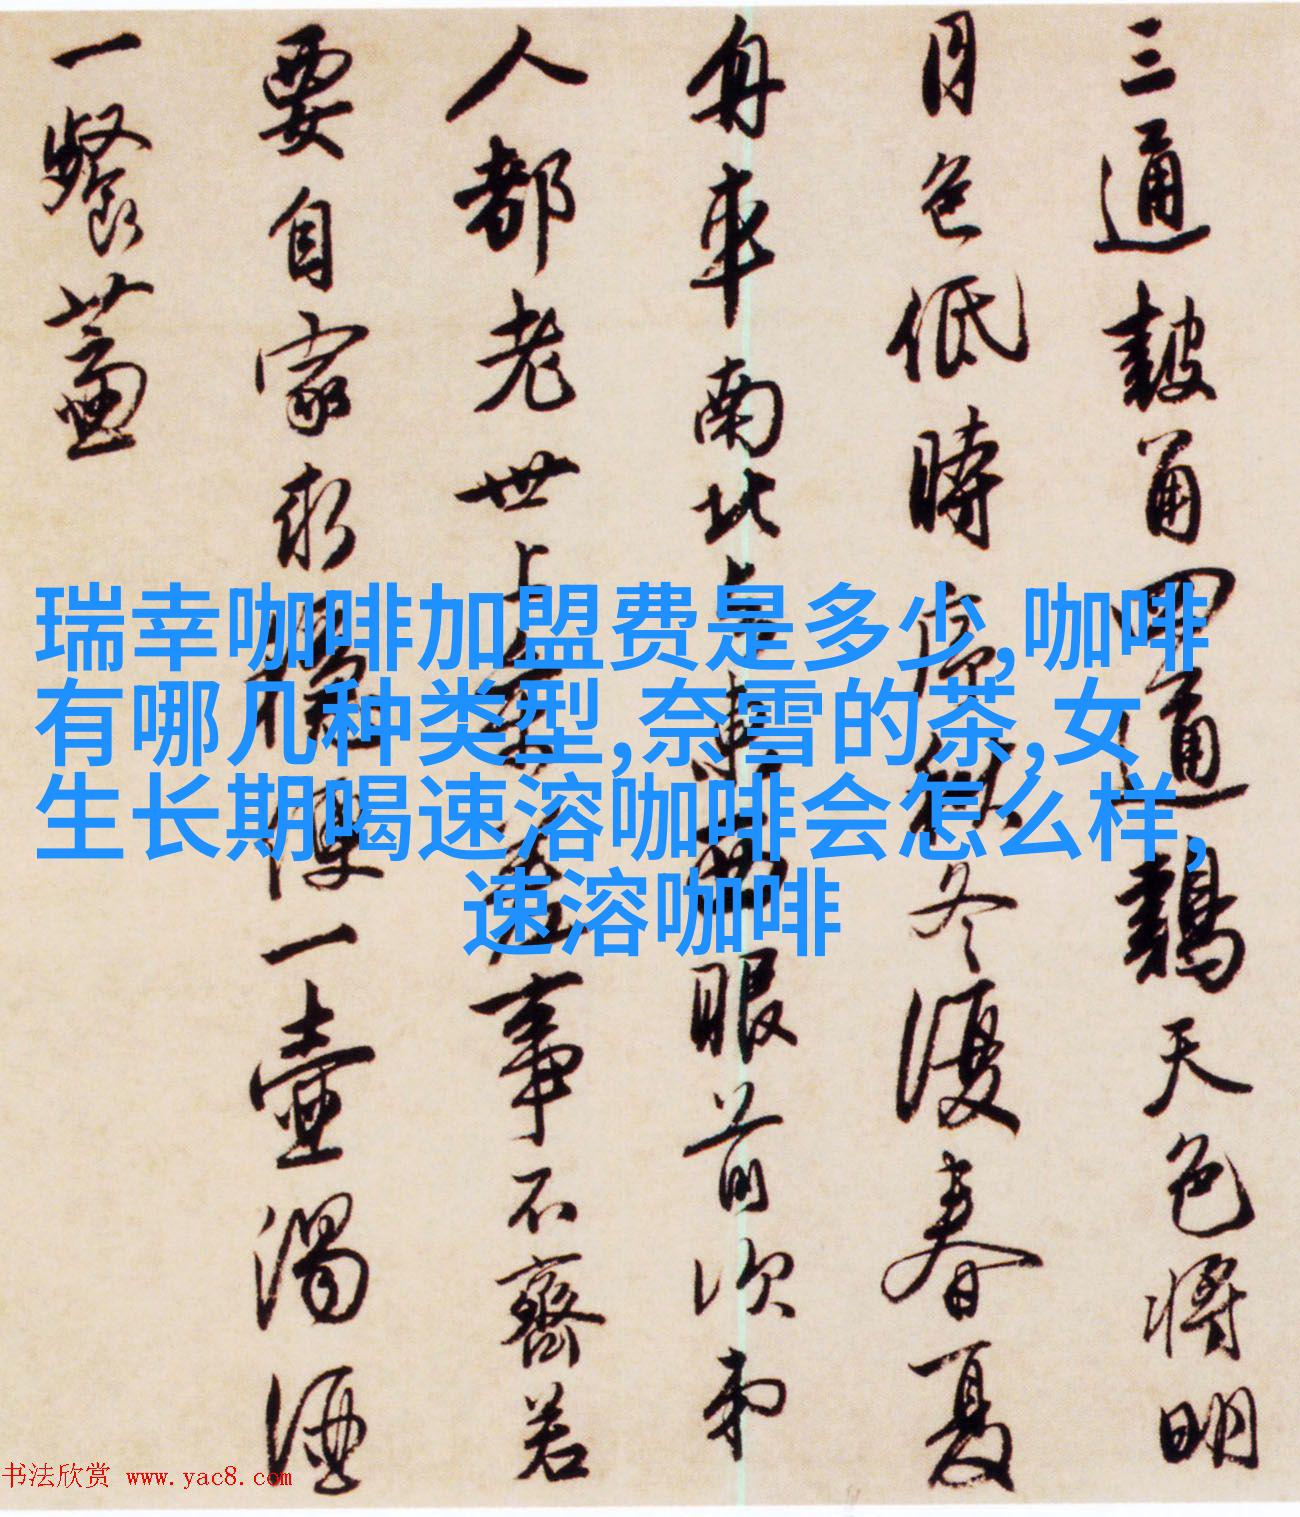 三通鼓角四通鷄天色將明
月色低時序秋冬復春夏
舟車南北與東西眼前次第
人都老世上參差事不齊若
要自家求穩便一壺濁酒
一餐虀
瑞幸咖啡加盟费是多少,咖啡
有哪几种类型,奈雪的茶,女
生长期喝速溶咖啡会怎么样,
速溶咖啡
书法欣赏 www.yac8.com